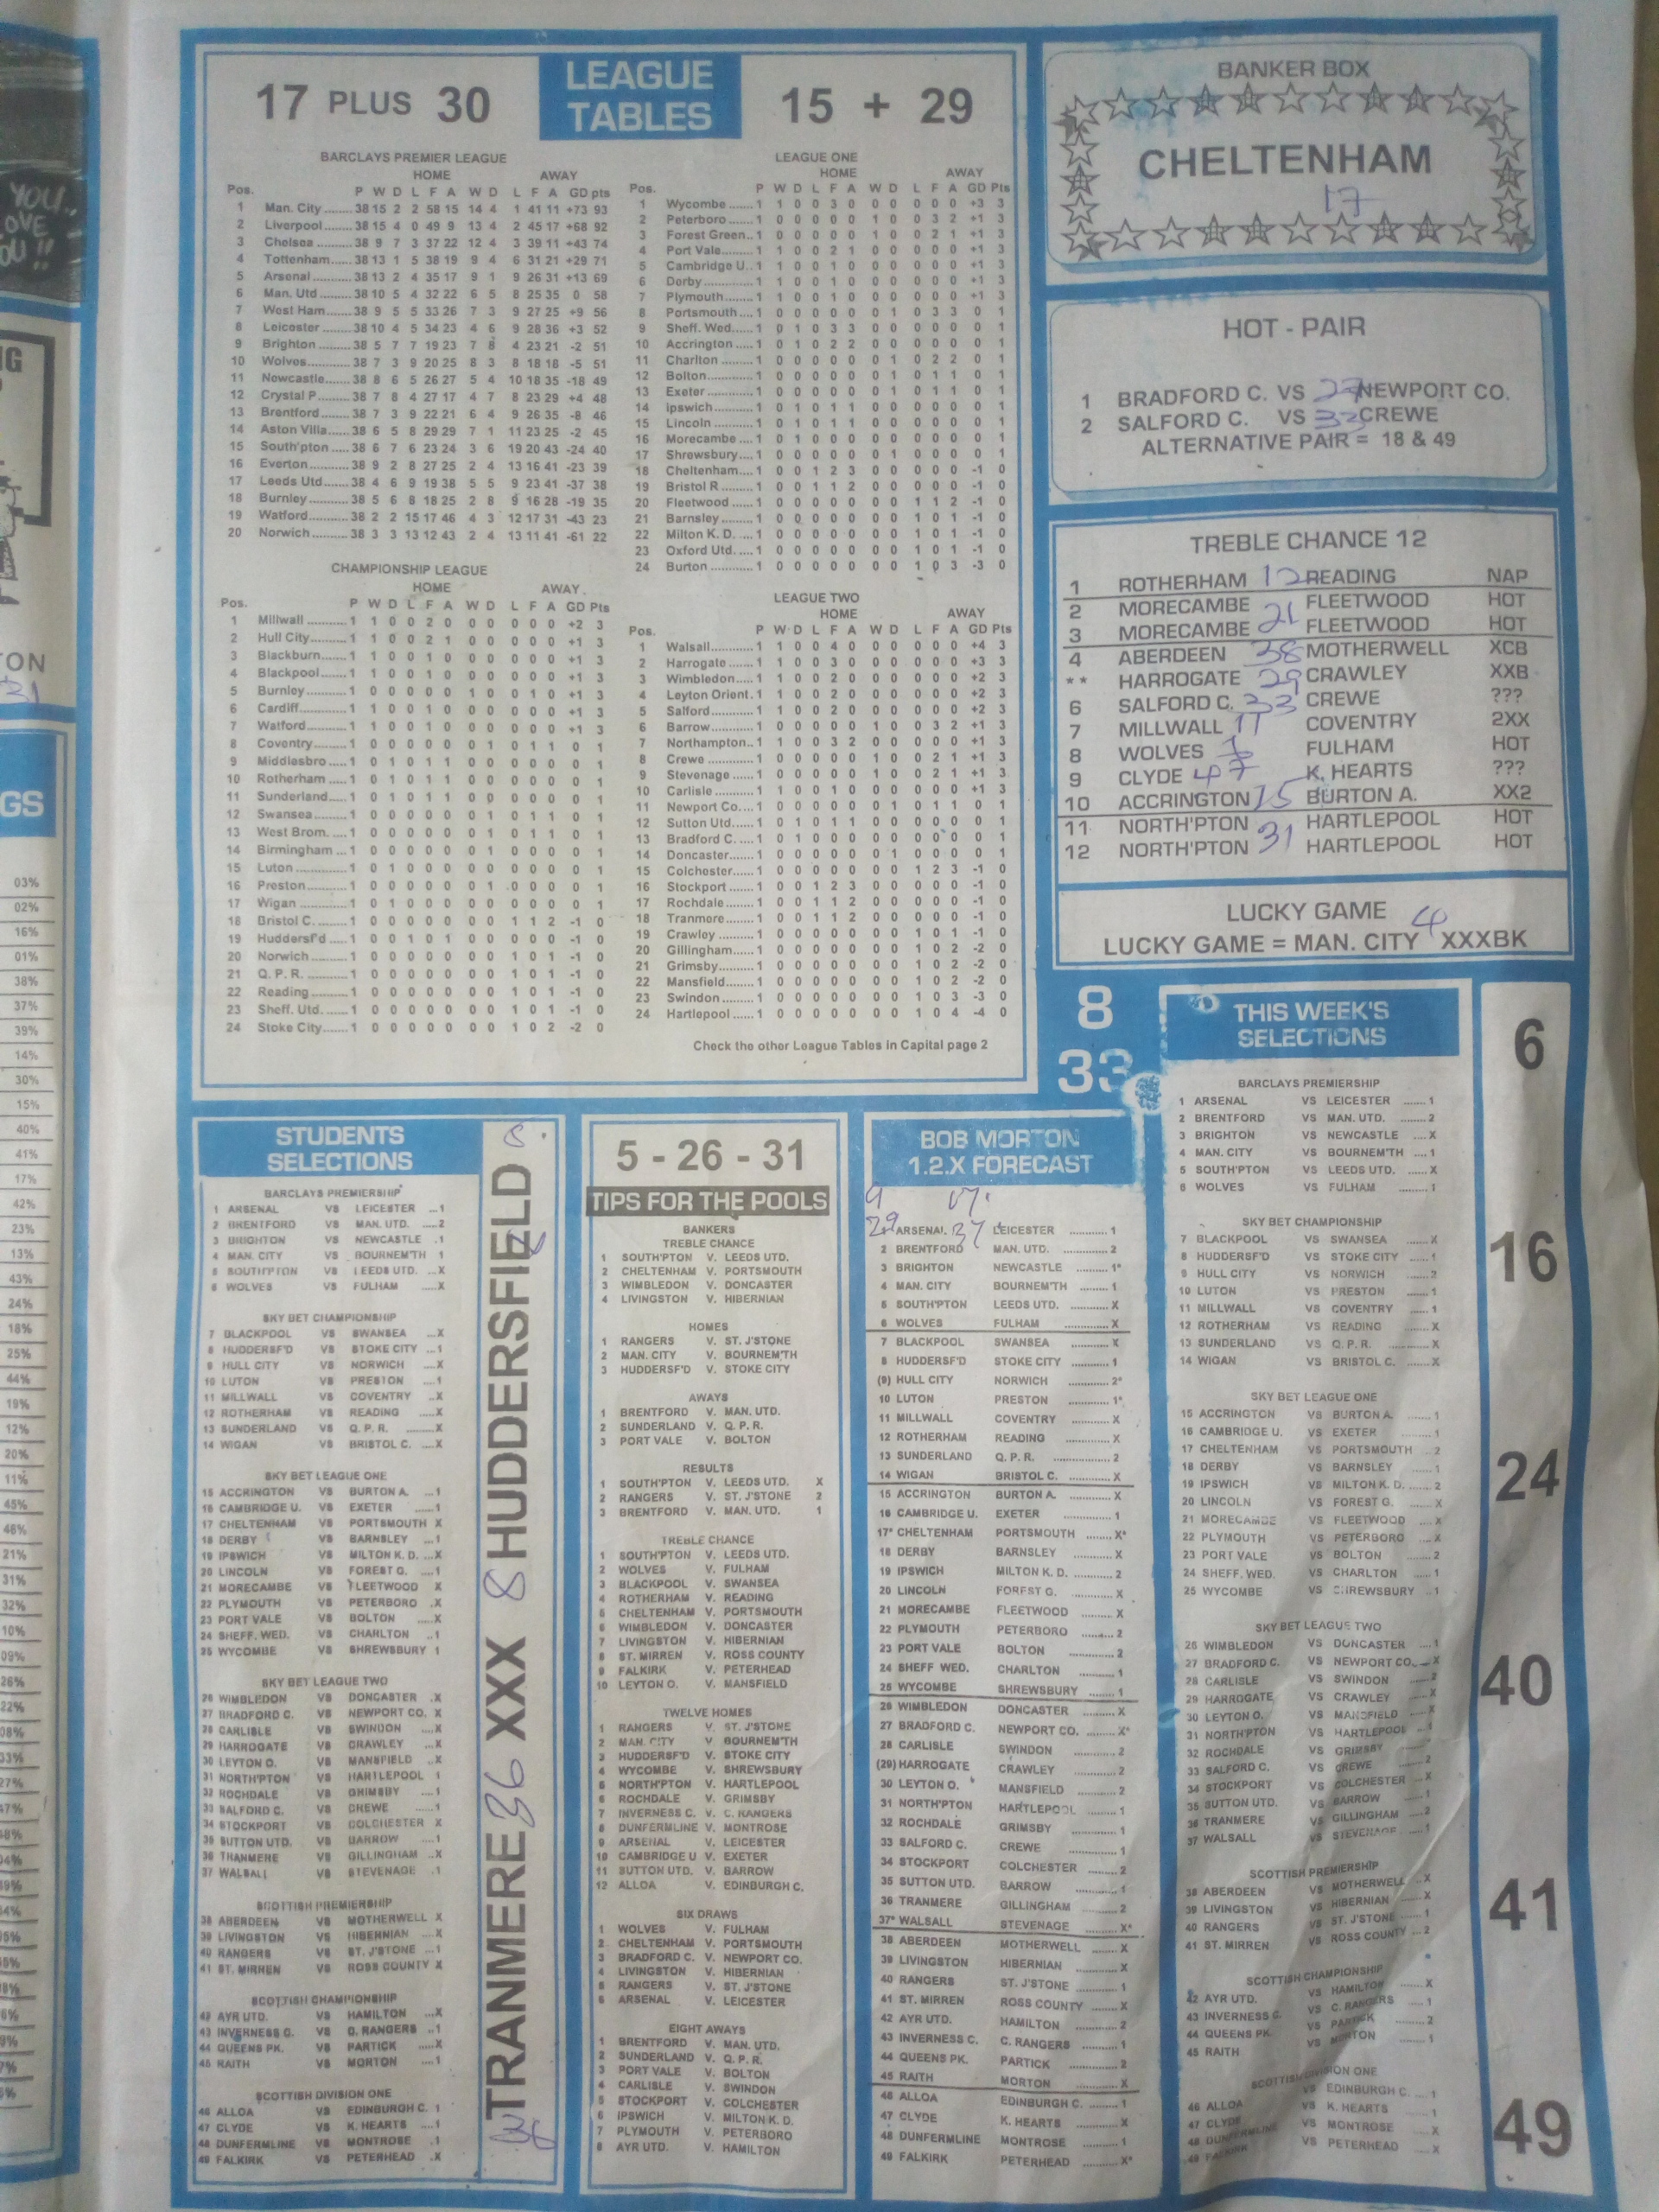 17 PLUS 30
LEAGUE TABLES
15 + 29
BARCLAYS PREMIER LEAGUE
HOME AWAY
Pos. P W D L F A W D L F A GD pts
1 Man. City ........ 38 15 2 2 58 15 14 4 1 41 11 +73 93
2 Liverpool ........ 38 15 4 0 49 9 13 4 2 45 17 +68 92
3 Chelsea ........ 38 9 7 3 37 22 12 4 3 39 11 +43 74
4 Tottenham ...... 38 13 1 5 38 19 9 4 6 31 21 +29 71
5 Arsenal ........ 38 13 2 4 35 17 9 1 9 26 31 +13 69
6 Man. Utd ........ 38 10 5 4 32 22 6 5 8 25 35 0 58
7 West Ham ...... 38 9 5 5 33 26 7 3 9 27 25 +9 56
8 Leicester ........ 38 10 4 5 34 23 4 6 9 28 36 +3 52
9 Brighton ........ 38 5 7 7 19 23 7 8 4 23 21 -2 51
10 Wolves ........ 38 7 3 9 20 25 8 3 8 18 18 -5 51
11 Newcastle ...... 38 8 6 5 26 27 5 4 10 18 35 -18 49
12 Crystal P ........ 38 7 8 4 27 17 4 7 8 23 29 +4 48
13 Brentford ........ 38 7 3 9 22 21 6 4 9 26 35 -8 46
14 Aston Villa ..... 38 6 5 8 29 29 7 1 11 23 25 -2 45
15 South'pton ..... 38 6 7 6 23 24 3 6 19 20 43 -24 40
16 Everton ........ 38 9 2 8 27 25 2 4 13 16 41 -23 39
17 Leeds Utd ...... 38 4 6 9 19 38 5 5 9 23 41 -37 38
18 Burnley ........ 38 5 6 8 18 25 2 8 9 16 28 -19 35
19 Watford ........ 38 2 2 15 17 46 4 3 12 17 31 -43 23
20 Norwich ........ 38 3 3 13 12 43 2 4 13 11 41 -61 22
CHAMPIONSHIP LEAGUE
HOME AWAY
Pos. P W D L F A W D L F A GD Pts
1 Millwall ........ 1 1 0 0 2 0 0 0 0 0 0 +2 3
2 Hull City ........ 1 1 0 0 2 1 0 0 0 0 0 +1 3
3 Blackburn ...... 1 1 0 0 1 0 0 0 0 0 0 +1 3
4 Blackpool ...... 1 1 0 0 1 0 0 0 0 0 0 +1 3
5 Burnley ........ 1 0 0 0 0 0 1 0 0 1 0 +1 3
6 Cardiff ........ 1 1 0 0 1 0 0 0 0 0 0 +1 3
7 Watford ........ 1 1 0 0 1 0 0 0 0 0 0 +1 3
8 Coventry ........ 1 0 0 0 0 0 0 1 0 1 1 0 1
9 Middlesbro ..... 1 0 1 0 1 1 0 0 0 0 0 0 1
10 Rotherham ..... 1 0 1 0 1 1 0 0 0 0 0 0 1
11 Sunderland ..... 1 0 1 0 1 1 0 0 0 0 0 0 1
12 Swansea ........ 1 0 0 0 0 0 0 1 0 1 1 0 1
13 West Brom. .... 1 0 0 0 0 0 0 1 0 1 1 0 1
14 Birmingham ... 1 0 0 0 0 0 0 1 0 0 0 0 1
15 Luton ........ 1 0 1 0 0 0 0 0 0 0 0 0 1
16 Preston ........ 1 0 0 0 0 0 0 1 0 0 0 0 1
17 Wigan ........ 1 0 1 0 0 0 0 0 0 0 0 0 1
18 Bristol C. ...... 1 0 0 0 0 0 0 0 1 1 2 -1 0
19 Huddersf'd ..... 1 0 0 1 0 1 0 0 0 0 0 -1 0
20 Norwich ........ 1 0 0 0 0 0 0 0 1 0 1 -1 0
21 Q. P. R. ........ 1 0 0 0 0 0 0 0 1 0 1 -1 0
22 Reading ........ 1 0 0 0 0 0 0 0 1 0 1 -1 0
23 Sheff. Utd. ..... 1 0 0 0 0 0 0 0 1 0 1 -1 0
24 Stoke City ...... 1 0 0 0 0 0 0 0 1 0 2 -2 0
LEAGUE ONE
HOME AWAY
Pos. P W D L F A W D L F A GD Pts
1 Wycombe ...... 1 1 0 0 3 0 0 0 0 0 0 +3 3
2 Peterboro ...... 1 0 0 0 0 0 1 0 0 3 2 +1 3
3 Forest Green .. 1 0 0 0 0 0 1 0 0 2 1 +1 3
4 Port Vale ...... 1 1 0 0 2 1 0 0 0 0 0 +1 3
5 Cambridge U.. 1 1 0 0 1 0 0 0 0 0 0 +1 3
6 Derby ........ 1 1 0 0 1 0 0 0 0 0 0 +1 3
7 Plymouth ...... 1 1 0 0 1 0 0 0 0 0 0 +1 3
8 Portsmouth .... 1 0 0 0 0 0 0 1 0 3 3 0 1
9 Sheff. Wed ..... 1 0 1 0 3 3 0 0 0 0 0 0 1
10 Accrington ..... 1 0 1 0 2 2 0 0 0 0 0 0 1
11 Charlton ........ 1 0 0 0 0 0 0 1 0 2 2 0 1
12 Bolton ........ 1 0 0 0 0 0 0 1 0 1 1 0 1
13 Exeter ........ 1 0 0 0 0 0 0 1 0 1 1 0 1
14 ipswich ........ 1 0 1 0 1 1 0 0 0 0 0 0 1
15 Lincoln ........ 1 0 1 0 1 1 0 0 0 0 0 0 1
16 Morecambe .... 1 0 1 0 0 0 0 0 0 0 0 0 1
17 Shrewsbury .... 1 0 0 0 0 0 0 1 0 0 0 0 1
18 Cheltenham .... 1 0 0 1 2 3 0 0 0 0 0 -1 0
19 Bristol R ........ 1 0 0 1 1 2 0 0 0 0 0 -1 0
20 Fleetwood ...... 1 0 0 0 0 0 0 0 1 1 2 -1 0
21 Barnsley ........ 1 0 0 0 0 0 0 0 1 0 1 -1 0
22 Milton K. D. .... 1 0 0 0 0 0 0 0 1 0 1 -1 0
23 Oxford Utd. .... 1 0 0 0 0 0 0 0 1 0 1 -1 0
24 Burton ........ 1 0 0 0 0 0 0 0 1 0 3 -3 0
LEAGUE TWO
HOME AWAY
Pos. P W D L F A W D L F A GD Pts
1 Walsall ........ 1 1 0 0 4 0 0 0 0 0 0 +4 3
2 Harrogate ...... 1 1 0 0 3 0 0 0 0 0 0 +3 3
3 Wimbledon ..... 1 1 0 0 2 0 0 0 0 0 0 +2 3
4 Leyton Orient. 1 1 0 0 2 0 0 0 0 0 0 +2 3
5 Salford ........ 1 1 0 0 2 0 0 0 0 0 0 +2 3
6 Barrow ........ 1 0 0 0 0 0 1 0 0 3 2 +1 3
7 Northampton .. 1 1 0 0 3 2 0 0 0 0 0 +1 3
8 Crewe ........ 1 0 0 0 0 0 1 0 0 2 1 +1 3
9 Stevenage ..... 1 0 0 0 0 0 1 0 0 2 1 +1 3
10 Carlisle ........ 1 1 0 0 1 0 0 0 0 0 0 +1 3
11 Newport Co.... 1 0 0 0 0 0 0 1 0 1 1 0 1
12 Sutton Utd..... 1 0 1 0 1 1 0 0 0 0 0 0 1
13 Bradford C. .... 1 0 1 0 0 0 0 0 0 0 0 0 1
14 Doncaster ...... 1 0 0 0 0 0 0 1 0 0 0 0 1
15 Colchester ..... 1 0 0 0 0 0 0 0 1 2 3 -1 0
16 Stockport ...... 1 0 0 1 2 3 0 0 0 0 0 -1 0
17 Rochdale ...... 1 0 0 1 1 2 0 0 0 0 0 -1 0
18 Tranmere ...... 1 0 0 1 1 2 0 0 0 0 0 -1 0
19 Crawley ........ 1 0 0 0 0 0 0 0 1 0 1 -1 0
20 Gillingham ..... 1 0 0 0 0 0 0 0 1 0 2 -2 0
21 Grimsby ........ 1 0 0 0 0 0 0 0 1 0 2 -2 0
22 Mansfield ...... 1 0 0 0 0 0 0 0 1 0 2 -2 0
23 Swindon ........ 1 0 0 0 0 0 0 0 1 0 3 -3 0
24 Hartlepool ..... 1 0 0 0 0 0 0 0 1 0 4 -4 0
Check the other League Tables in Capital page 2
BANKER BOX
CHELTENHAM
17
HOT - PAIR
1 BRADFORD C. VS 27 NEWPORT CO.
2 SALFORD C. VS 33 CREWE
ALTERNATIVE PAIR = 18 & 49
TREBLE CHANCE 12
1 ROTHERHAM 12 READING NAP
2 MORECAMBE FLEETWOOD HOT
3 MORECAMBE 21 FLEETWOOD HOT
4 ABERDEEN 38 MOTHERWELL XCB
** HARROGATE 29 CRAWLEY XXB
6 SALFORD C. 33 CREWE ???
7 MILLWALL 11 COVENTRY 2XX
8 WOLVES 6 FULHAM HOT
9 CLYDE 47 K. HEARTS ???
10 ACCRINGTON 15 BURTON A. XX2
11 NORTH'PTON HARTLEPOOL HOT
12 NORTH'PTON 31 HARTLEPOOL HOT
LUCKY GAME 4
LUCKY GAME = MAN. CITY XXXBK
8
33
STUDENTS SELECTIONS
BARCLAYS PREMIERSHIP
1 ARSENAL VS LEICESTER ...1
2 BRENTFORD VS MAN. UTD. .....2
3 BRIGHTON VS NEWCASTLE .1
4 MAN. CITY VS BOURNEM'TH 1
5 SOUTH'PTON VS LEEDS UTD. ...X
6 WOLVES VS FULHAM .....X
SKY BET CHAMPIONSHIP
7 BLACKPOOL VS SWANSEA ...X
8 HUDDERSF'D VS STOKE CITY ...1
9 HULL CITY VS NORWICH ....X
10 LUTON VS PRESTON ....1
11 MILLWALL VS COVENTRY ..X
12 ROTHERHAM VS READING .....X
13 SUNDERLAND VS Q. P. R. ......X
14 WIGAN VS BRISTOL C. ....X
SKY BET LEAGUE ONE
15 ACCRINGTON VS BURTON A. ...1
16 CAMBRIDGE U. VS EXETER ......1
17 CHELTENHAM VS PORTSMOUTH X
18 DERBY VS BARNSLEY ...1
19 IPSWICH VS MILTON K. D. ...X
20 LINCOLN VS FOREST G. ....1
21 MORECAMBE VS FLEETWOOD X
22 PLYMOUTH VS PETERBORO .X
23 PORT VALE VS BOLTON .....X
24 SHEFF. WED. VS CHARLTON ..1
25 WYCOMBE VS SHREWSBURY 1
SKY BET LEAGUE TWO
26 WIMBLEDON VS DONCASTER .X
27 BRADFORD C. VS NEWPORT CO. X
28 CARLISLE VS SWINDON ....X
29 HARROGATE VS CRAWLEY ...X
30 LEYTON O. VS MANSFIELD ..X
31 NORTH'PTON VS HARTLEPOOL 1
32 ROCHDALE VS GRIMSBY ....1
33 SALFORD C. VS CREWE ......1
34 STOCKPORT VS COLCHESTER X
35 SUTTON UTD. VS BARROW ....1
36 TRANMERE VS GILLINGHAM ..X
37 WALSALL VS STEVENAGE .1
SCOTTISH PREMIERSHIP
38 ABERDEEN VS MOTHERWELL X
39 LIVINGSTON VS HIBERNIAN ....X
40 RANGERS VS ST. J'STONE ...1
41 ST. MIRREN VS ROSS COUNTY X
SCOTTISH CHAMPIONSHIP
42 AYR UTD. VS HAMILTON ...X
43 INVERNESS C. VS C. RANGERS ..1
44 QUEENS PK. VS PARTICK .....X
45 RAITH VS MORTON ....1
SCOTTISH DIVISION ONE
46 ALLOA VS EDINBURGH C. 1
47 CLYDE VS K. HEARTS ....1
48 DUNFERMLINE VS MONTROSE .1
49 FALKIRK VS PETERHEAD .X
TRANMERE 36 XXX 8 HUDDERSFIELD
8
36
5 - 26 - 31
TIPS FOR THE POOLS
BANKERS
TREBLE CHANCE
1 SOUTH'PTON V. LEEDS UTD.
2 CHELTENHAM V. PORTSMOUTH
3 WIMBLEDON V. DONCASTER
4 LIVINGSTON V. HIBERNIAN
HOMES
1 RANGERS V. ST. J'STONE
2 MAN. CITY V. BOURNEM'TH
3 HUDDERSF'D V. STOKE CITY
AWAYS
1 BRENTFORD V. MAN. UTD.
2 SUNDERLAND V. Q. P. R.
3 PORT VALE V. BOLTON
RESULTS
1 SOUTH'PTON V. LEEDS UTD. X
2 RANGERS V. ST. J'STONE 2
3 BRENTFORD V. MAN. UTD 1
TREBLE CHANCE
1 SOUTH'PTON V. LEEDS UTD.
2 WOLVES V. FULHAM
3 BLACKPOOL V. SWANSEA
4 ROTHERHAM V. READING
5 CHELTENHAM V. PORTSMOUTH
6 WIMBLEDON V. DONCASTER
7 LIVINGSTON V. HIBERNIAN
8 ST. MIRREN V. ROSS COUNTY
9 FALKIRK V. PETERHEAD
10 LEYTON O. V. MANSFIELD
TWELVE HOMES
1 RANGERS V. ST. J'STONE
2 MAN. CITY V. BOURNEM'TH
3 HUDDERSF'D V. STOKE CITY
4 WYCOMBE V. SHREWSBURY
5 NORTH'PTON V. HARTLEPOOL
6 ROCHDALE V. GRIMSBY
7 INVERNESS C. V. C. RANGERS
8 DUNFERMLINE V. MONTROSE
9 ARSENAL V. LEICESTER
10 CAMBRIDGE U V. EXETER
11 SUTTON UTD. V. BARROW
12 ALLOA V. EDINBURGH C.
SIX DRAWS
1 WOLVES V. FULHAM
2 CHELTENHAM V. PORTSMOUTH
3 BRADFORD C. V. NEWPORT CO.
4 LIVINGSTON V. HIBERNIAN
5 RANGERS V. ST. J'STONE
6 ARSENAL V. LEICESTER
EIGHT AWAYS
1 BRENTFORD V. MAN. UTD.
2 SUNDERLAND V. Q. P. R.
3 PORT VALE V. BOLTON
4 CARLISLE V. SWINDON
5 STOCKPORT V. COLCHESTER
6 IPSWICH V. MILTON K. D.
7 PLYMOUTH V. PETERBORO
8 AYR UTD. V. HAMILTON
BOB MORTON
1.2.X FORECAST
9 17.
29 37
1 ARSENAL LEICESTER ............ 1
2 BRENTFORD MAN. UTD. ............ 2
3 BRIGHTON NEWCASTLE .......... 1*
4 MAN. CITY BOURNEM'TH ......... 1
5 SOUTH'PTON LEEDS UTD. ........... X
6 WOLVES FULHAM ............... X
7 BLACKPOOL SWANSEA ............ X
8 HUDDERSF'D STOKE CITY .......... 1
(9) HULL CITY NORWICH ............ 2*
10 LUTON PRESTON ............ 1*
11 MILLWALL COVENTRY ........... X
12 ROTHERHAM READING ............ X
13 SUNDERLAND Q. P. R. .............. 2
14 WIGAN BRISTOL C. ........... X
15 ACCRINGTON BURTON A. ........... X
16 CAMBRIDGE U. EXETER .............. 1
17* CHELTENHAM PORTSMOUTH ....... X*
18 DERBY BARNSLEY .......... X
19 IPSWICH MILTON K. D. ......... 2
20 LINCOLN FOREST G. .......... X
21 MORECAMBE FLEETWOOD ......... X
22 PLYMOUTH PETERBORO ......... 2
23 PORT VALE BOLTON .............. 2
24 SHEFF WED. CHARLTON ........... 1
25 WYCOMBE SHREWSBURY ....... 1
26 WIMBLEDON DONCASTER ......... X
27 BRADFORD C. NEWPORT CO. ........ X*
28 CARLISLE SWINDON ............ 2
(29) HARROGATE CRAWLEY ............ 2
30 LEYTON O. MANSFIELD .......... 2
31 NORTH'PTON HARTLEPOOL ........ 1
32 ROCHDALE GRIMSBY ............ 1
33 SALFORD C. CREWE .............. 1
34 STOCKPORT COLCHESTER ........ 2
35 SUTTON UTD. BARROW ............. 1
36 TRANMERE GILLINGHAM ......... 2
37* WALSALL STEVENAGE ......... X*
38 ABERDEEN MOTHERWELL ....... X
39 LIVINGSTON HIBERNIAN .......... X
40 RANGERS ST. J'STONE ......... 1
41 ST. MIRREN ROSS COUNTY ....... X
42 AYR UTD. HAMILTON ........... 2
43 INVERNESS C. C. RANGERS ......... 1
44 QUEENS PK. PARTICK ............ 2
45 RAITH MORTON ............ X
46 ALLOA EDINBURGH C. ....... 1
47 CLYDE K. HEARTS .......... X
48 DUNFERMLINE MONTROSE .......... 1
49 FALKIRK PETERHEAD ......... X*
THIS WEEK'S SELECTIONS
BARCLAYS PREMIERSHIP
1 ARSENAL VS LEICESTER .......1
2 BRENTFORD VS MAN. UTD. ......2
3 BRIGHTON VS NEWCASTLE ....X
4 MAN. CITY VS BOURNEM'TH ....1
5 SOUTH'PTON VS LEEDS UTD. .....X
6 WOLVES VS FULHAM .........1
SKY BET CHAMPIONSHIP
7 BLACKPOOL VS SWANSEA ......X
8 HUDDERSF'D VS STOKE CITY .....1
9 HULL CITY VS NORWICH .......2
10 LUTON VS PRESTON .......1
11 MILLWALL VS COVENTRY .....1
12 ROTHERHAM VS READING .......X
13 SUNDERLAND VS Q. P. R. .........X
14 WIGAN VS BRISTOL C. ......X
SKY BET LEAGUE ONE
15 ACCRINGTON VS BURTON A. ......1
16 CAMBRIDGE U. VS EXETER .........1
17 CHELTENHAM VS PORTSMOUTH ..2
18 DERBY VS BARNSLEY .....1
19 IPSWICH VS MILTON K. D. ....2
20 LINCOLN VS FOREST G. .....X
21 MORECAMBE VS FLEETWOOD ....X
22 PLYMOUTH VS PETERBORO ....X
23 PORT VALE VS BOLTON .........2
24 SHEFF. WED. VS CHARLTON ......1
25 WYCOMBE VS SHREWSBURY ..1
SKY BET LEAGUE TWO
26 WIMBLEDON VS DONCASTER ....1
27 BRADFORD C. VS NEWPORT CO....X
28 CARLISLE VS SWINDON .......2
29 HARROGATE VS CRAWLEY .......X
30 LEYTON O. VS MANSFIELD .....X
31 NORTH'PTON VS HARTLEPOOL ...1
32 ROCHDALE VS GRIMSBY
33 SALFORD C. VS CREWE ........2
34 STOCKPORT VS COLCHESTER ...X
35 SUTTON UTD. VS BARROW ........1
36 TRANMERE VS GILLINGHAM ....2
37 WALSALL VS STEVENAGE .....1
SCOTTISH PREMIERSHIP
38 ABERDEEN VS MOTHERWELL ..X
39 LIVINGSTON VS HIBERNIAN .....X
40 RANGERS VS ST. J'STONE .....1
41 ST. MIRREN VS ROSS COUNTY ...2
SCOTTISH CHAMPIONSHIP
42 AYR UTD. VS HAMILTON ......X
43 INVERNESS C. VS C. RANGERS ....1
44 QUEENS PK. VS PARTICK .......2
45 RAITH VS MORTON .......1
SCOTTISH DIVISION ONE
46 ALLOA VS EDINBURGH C. ....1
47 CLYDE VS K. HEARTS ......1
48 DUNFERMLINE VS MONTROSE ......X
49 FALKIRK VS PETERHEAD .....X
6
16
24
40
41
49
YOU..
OVE
OU!!
GS
03%
02%
16%
01%
38%
37%
39%
14%
30%
15%
40%
41%
17%
42%
23%
13%
43%
24%
18%
25%
44%
19%
12%
20%
11%
45%
48%
21%
31%
32%
10%
09%
26%
22%